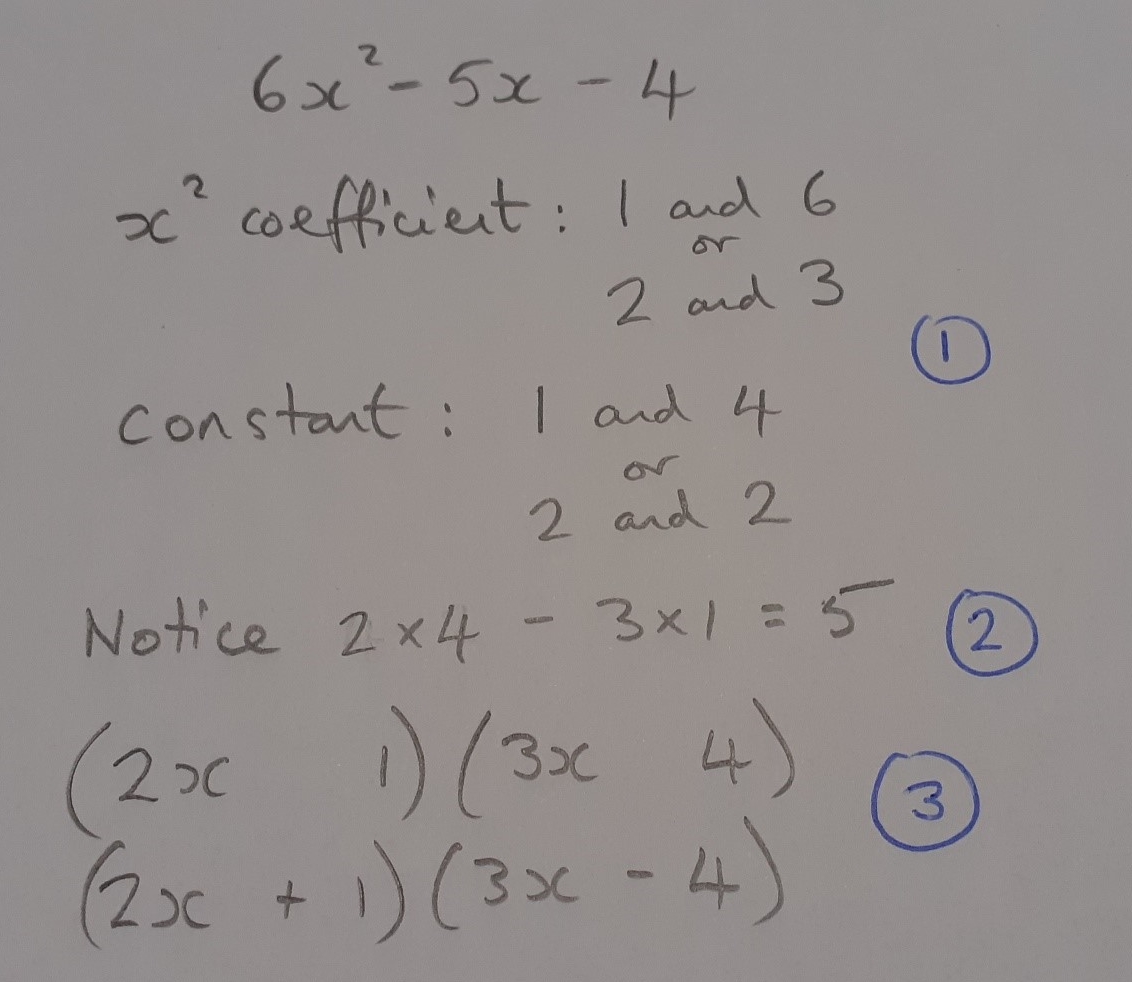 6x² - 5x - 4
x² coefficient: 1 and 6
or
2 and 3
①
constant: 1 and 4
or
2 and 2
Notice 2×4 - 3×1 = 5 ②
(2x 1)(3x 4) ③
(2x + 1)(3x - 4)